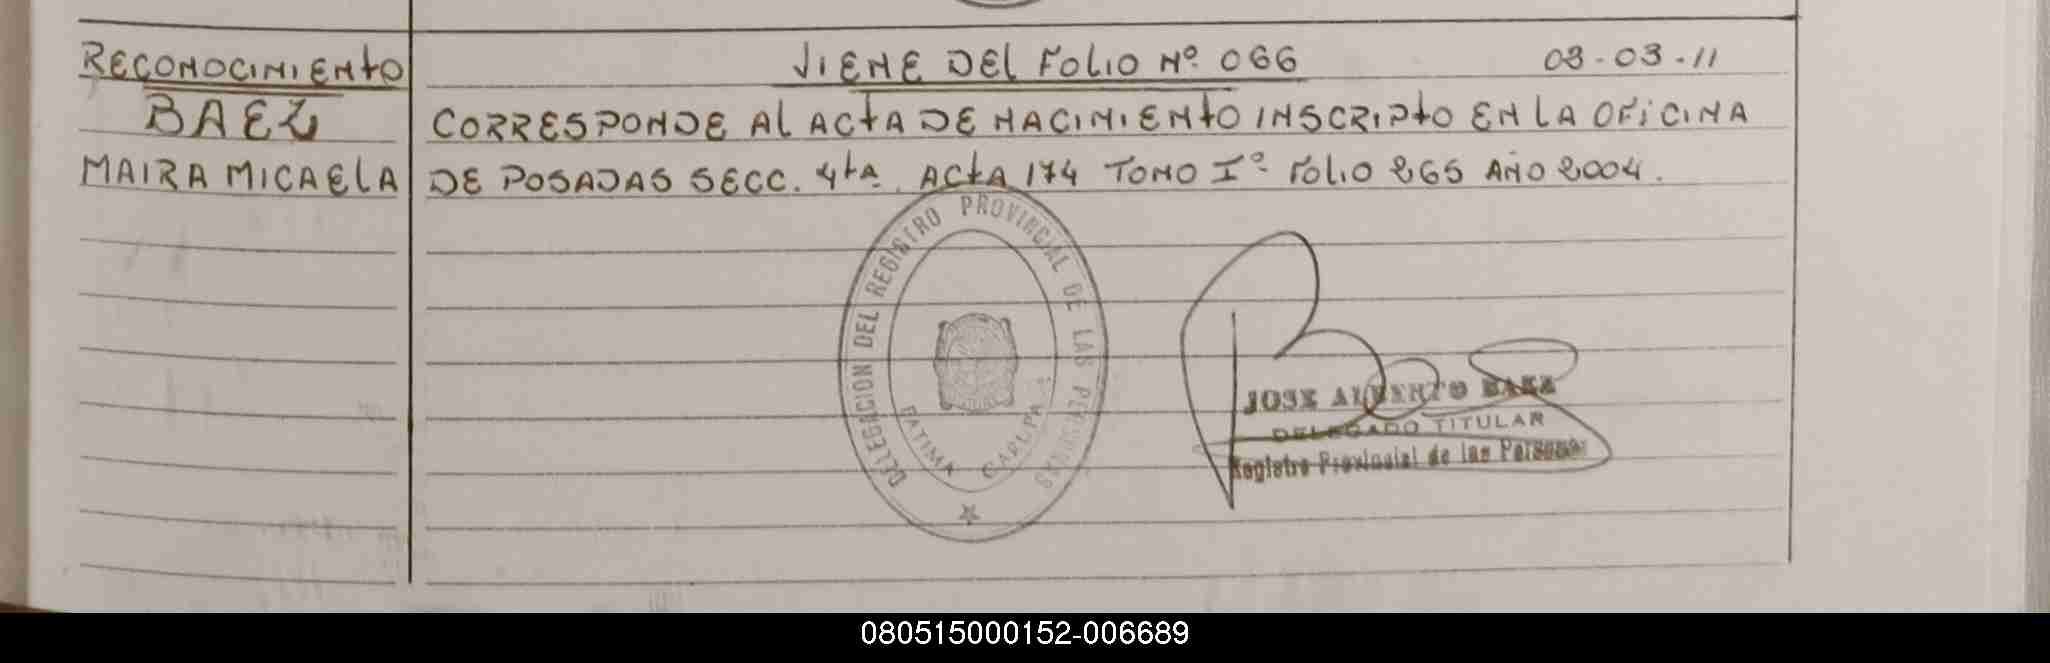 RECONOCIMIENTO
BAEZ
MAIRA MICAELA
VIENE DEL FOLIO Nº 066 03-03-11
CORRESPONDE AL ACTA DE NACIMIENTO INSCRIPTO EN LA OFICINA
DE POSADAS SECC. 4ta. ACTA 174 TOMO Iº FOLIO 265 AÑO 2004.
DELEGACION DEL REGISTRO PROVINCIAL DE LAS PERSONAS
FATIMA GARUPA
JOSE ALBERTO BAEZ
DELEGADO TITULAR
Registro Provincial de las Personas
080515000152-006689